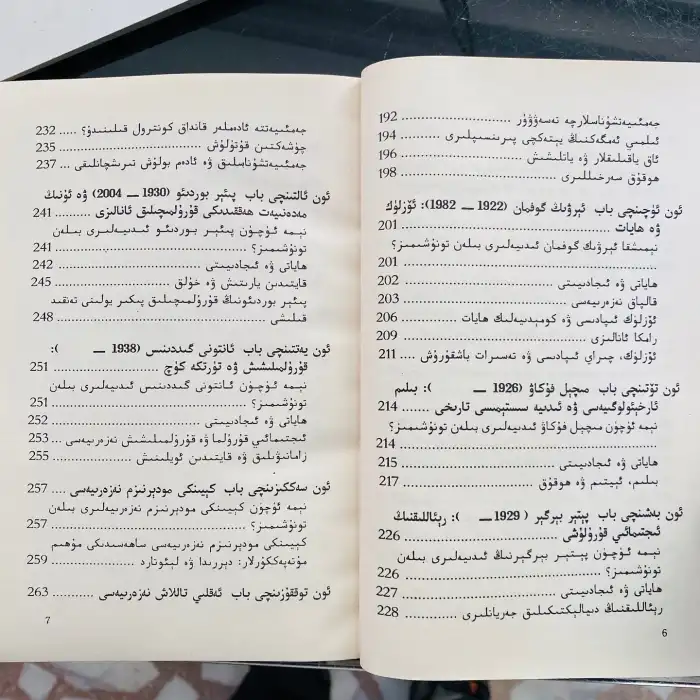 جەمئىيەتشۇناسلارچە تەسەۋۋۇر ........ 192
ئىلمىي ئەمگەكنىڭ يېتەكچى پىرىنسىپلىرى ........ 194
ئاق ياقىلىقلار ۋە ياتلىشىش ........ 196
هوقۇق سەرخىللىرى ........ 198
ئون ئۈچىنچى باب ئېرۋىڭ گوفمان (1922 — 1982): ئۆزلۈك
ۋە هايات ........ 201
نېمىشقا ئېرۋىڭ گوفمان ئىدىيەلىرى بىلەن تونۇشىمىز؟
........ 201
هاياتى ۋە ئىجادىيىتى ........ 202
قالپاق نەزەرىيەسى ........ 203
ئۆزلۈك ئىپادىسى ۋە كومېدىيەلىك هايات ........ 206
رامكا ئانالىزى ........ 209
ئۆزلۈك، چىراي ئىپادىسى ۋە تەسىرات باشقۇرۇش ........ 211
ئون تۆتىنچى باب مىچېل فۇكاۋ (1926 — ): بىلىم
ئارخېئولوگىيەسى ۋە ئىدىيە سىستېمىسى تارىخى ........ 214
نېمە ئۈچۈن مىچېل فۇكاۋ ئىدىيەلىرى بىلەن تونۇشىمىز؟
........ 214
هاياتى ۋە ئىجادىيىتى ........ 215
بىلىم، ئېيتىم ۋە هوقۇق ........ 217
ئون بەشىنچى باب پېتېر بېرگېر (1929 — ): رېئاللىقنىڭ
ئىجتىمائىي قۇرۇلۇشى ........ 226
نېمە ئۈچۈن پېتېر بېرگېرنىڭ ئىدىيەلىرى بىلەن
تونۇشىمىز؟ ........ 226
هاياتى ۋە ئىجادىيىتى ........ 227
رېئاللىقنىڭ دىيالېكتىكىلىق جەريانلىرى ........ 228
6
جەمئىيەتتە ئادەملەر قانداق كونترول قىلىنىدۇ؟ ..... 232
چۈشەكتىن قۇتۇلۇش ........ 235
جەمئىيەتشۇناسلىق ۋە ئادەم بولۇش تىرىشچانلىقى ... 237
ئون ئالتىنچى باب پىئېر بوردىئو (1930 — 2004) ۋە ئۇنىڭ
مەدەنىيەت هەققىدىكى قۇرۇلمىچىلىق ئانالىزى ........ 241
نېمە ئۈچۈن پىئېر بوردىئو ئىدىيەلىرى بىلەن
تونۇشىمىز؟ ........ 241
هاياتى ۋە ئىجادىيىتى ........ 242
قايتىدىن يارىتىش ۋە خۇلق ........ 245
پىئېر بوردىئونىڭ قۇرۇلمىچىلىق پىكىر يولىنى تەنقىد
قىلىشى ........ 248
ئون يەتتىنچى باب ئانتونى گىددىنىس (1938 — ):
قۇرۇلمىلىشىش ۋە تۈرتكە كۈچ ........ 251
نېمە ئۈچۈن ئانتونى گىددىنىس ئىدىيەلىرى بىلەن
تونۇشىمىز؟ ........ 251
هاياتى ۋە ئىجادىيىتى ........ 252
ئىجتىمائىي قۇرۇلما ۋە قۇرۇلمىلىشىش نەزەرىيەسى ... 253
زامانىۋىلىق ۋە قايتىدىن ئويلىنىش ........ 255
ئون سەككىزىنچى باب كېيىنكى مودېرنىزم نەزەرىيەسى .... 257
نېمە ئۈچۈن كېيىنكى مودېرنىزم ئىدىيەلىرى بىلەن
تونۇشىمىز؟ ........ 257
كېيىنكى مودېرنىزم نەزەرىيەسى ساهەسىدىكى مۇهىم
مۇتەپەككۇرلار: دېررىدا ۋە لېئوتارد ........ 259
ئون توققۇزىنچى باب ئەقلىي تاللاش نەزەرىيەسى ........ 263
7